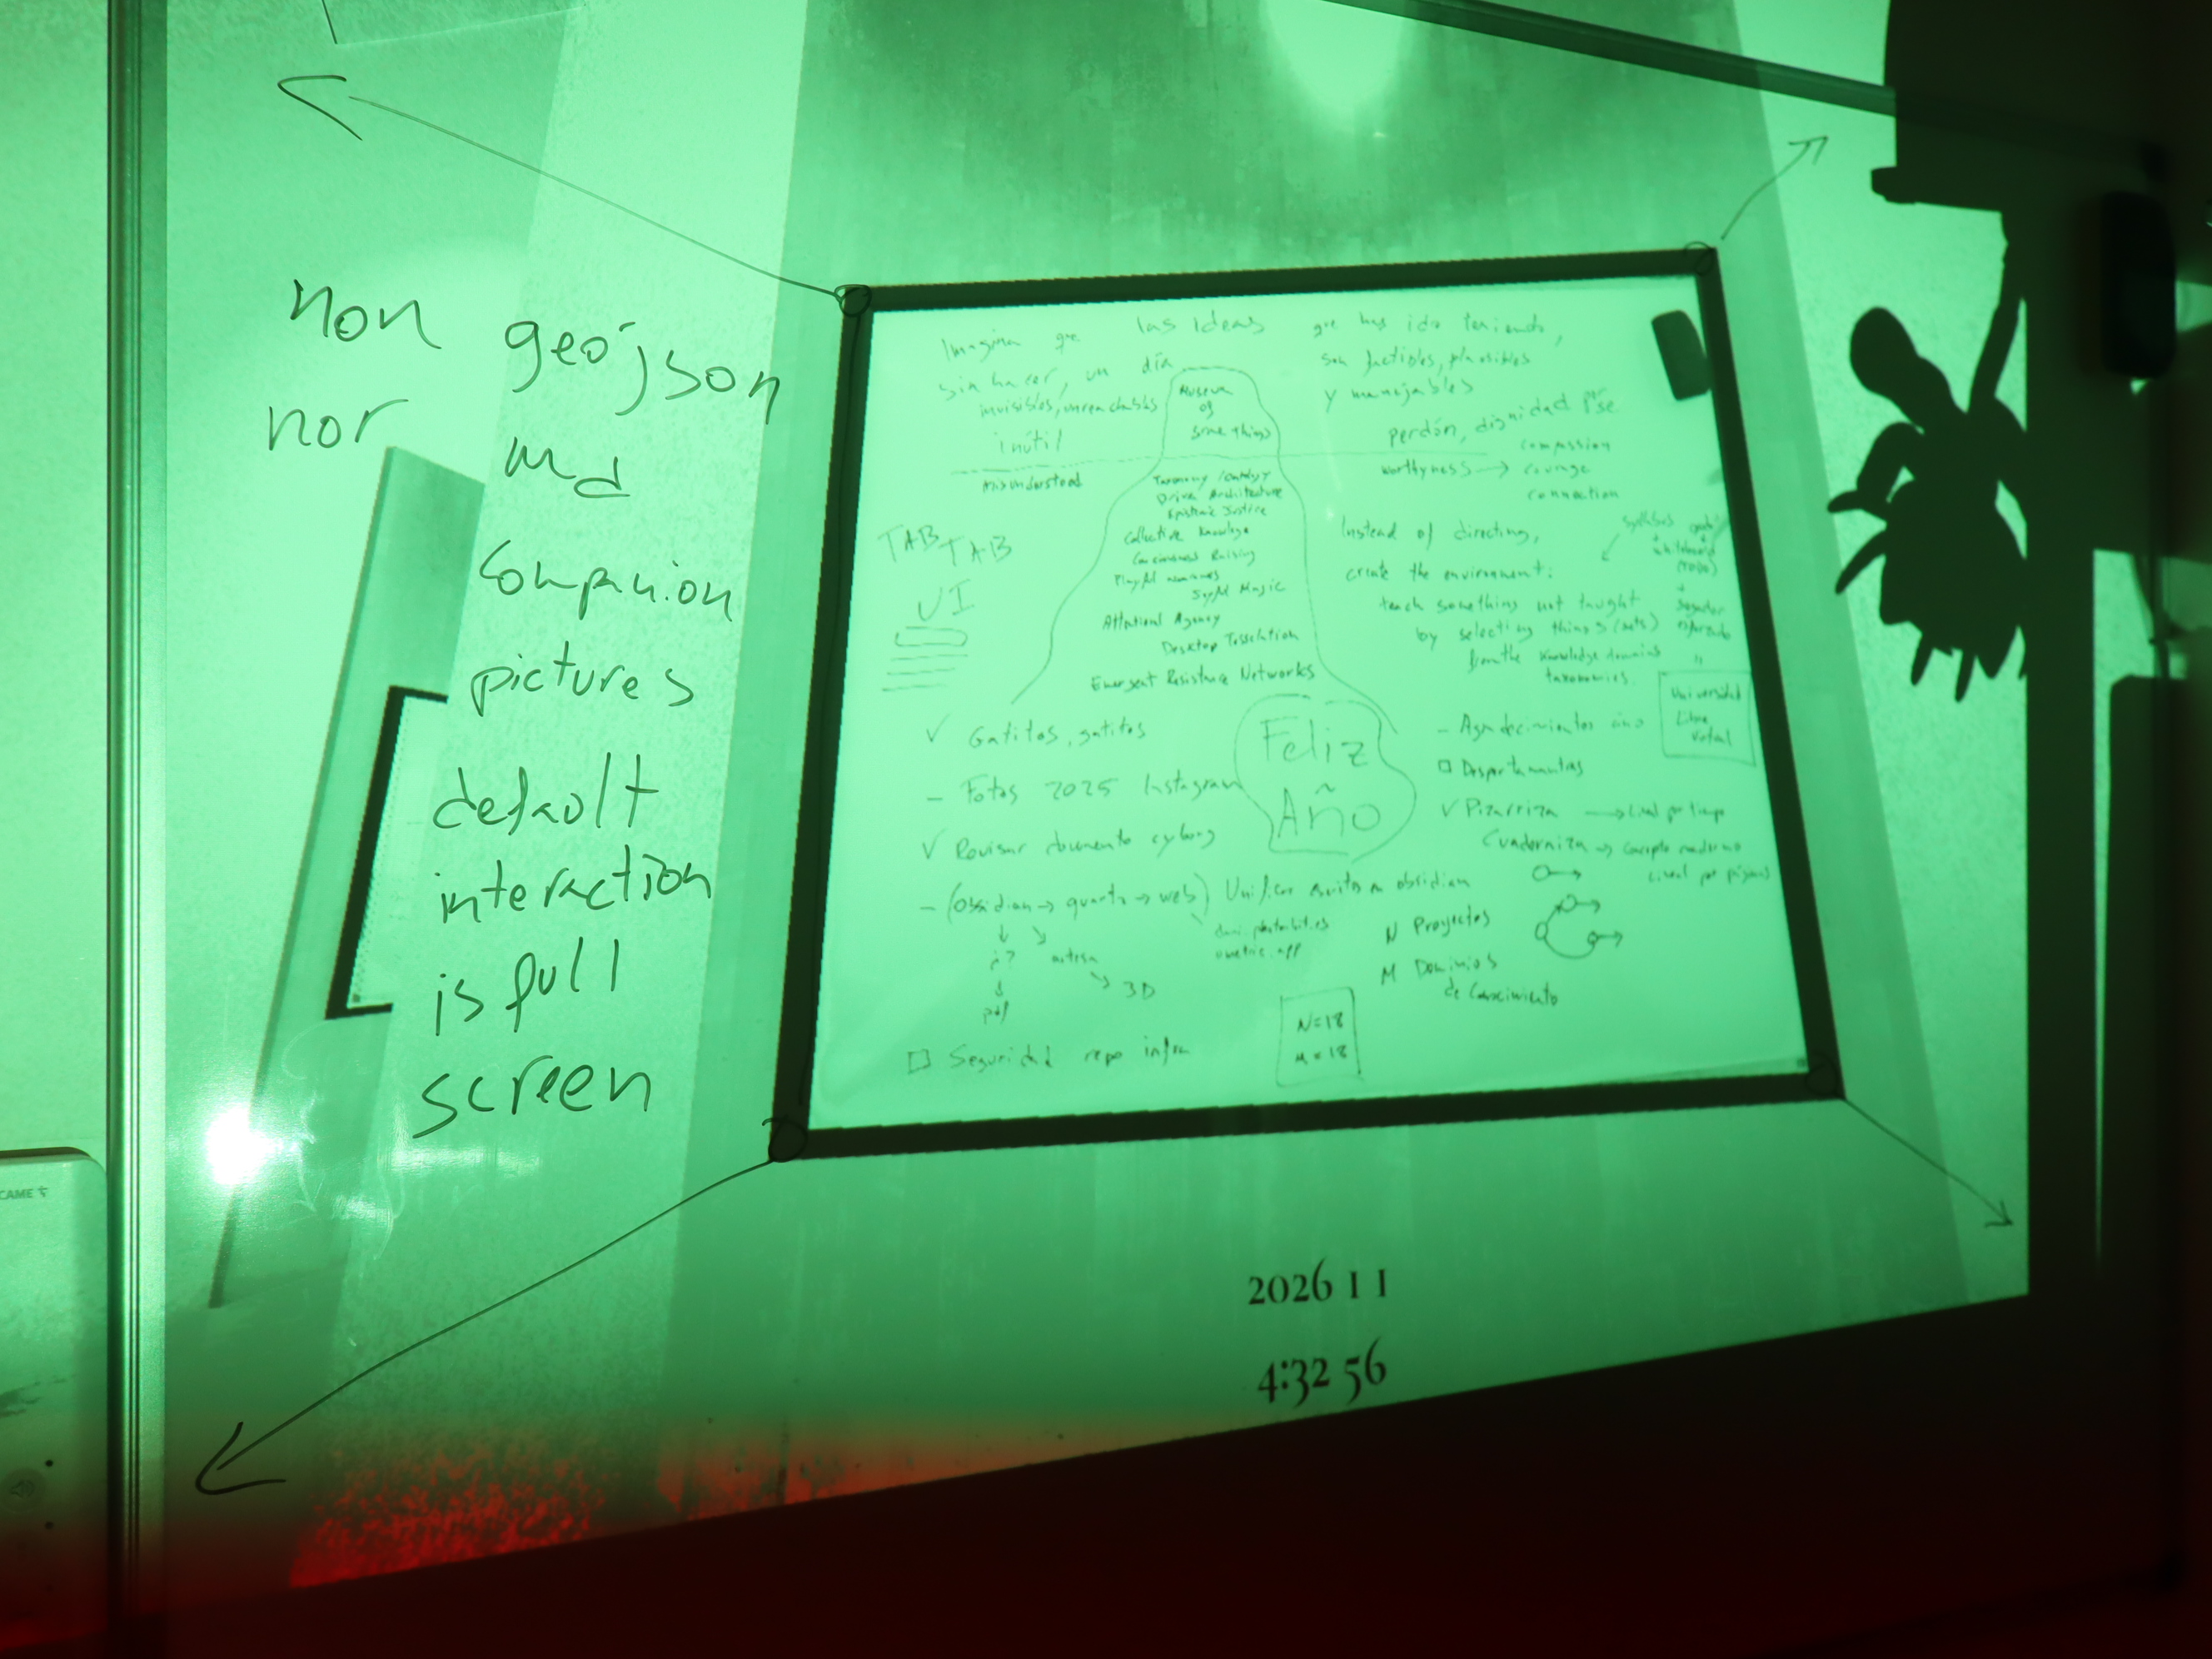 non geojson
nor md
companion
pictures
default
interaction
is full
screen
Imagina que las ideas que has ido teniendo,
sin hacer, un día son factibles, plausibles
invisibles, unreachables y manejables
inútil
misunderstood
Museum
of
some things
perdón, dignidad
worthyness → compassion
courage
connection
Taxonomy / Ontology
Driven Architecture
Epistemic Justice
Collective Knowledge
Consciousness Raising
Playful
Magic
Attentional Agency
Desktop Tessellation
Emergent Resistance Networks
TAB TAB
UI
Instead of directing,
create the environment:
teach something not taught
by selecting things (sets)
from the knowledge domains
taxonomies.
Universidad
Libre
Virtual
✓ Gatitos, gatitos
- Fotos 2025 Instagram
✓ Revisar documento cyborg
- (Obsidian → quarto → web) Unificar escritos en obsidian
¿?
pdf
3D
□ Seguridad repo infra
Feliz
Año
- Agradecimientos año
□
✓ Pizarriza → lineal por tiempo
Cuaderniza → concepto cuaderno
lineal por páginas
N Proyectos
M Dominios
de Conocimiento
N=18
M=18
2026 1 1
4:32 56
CAME